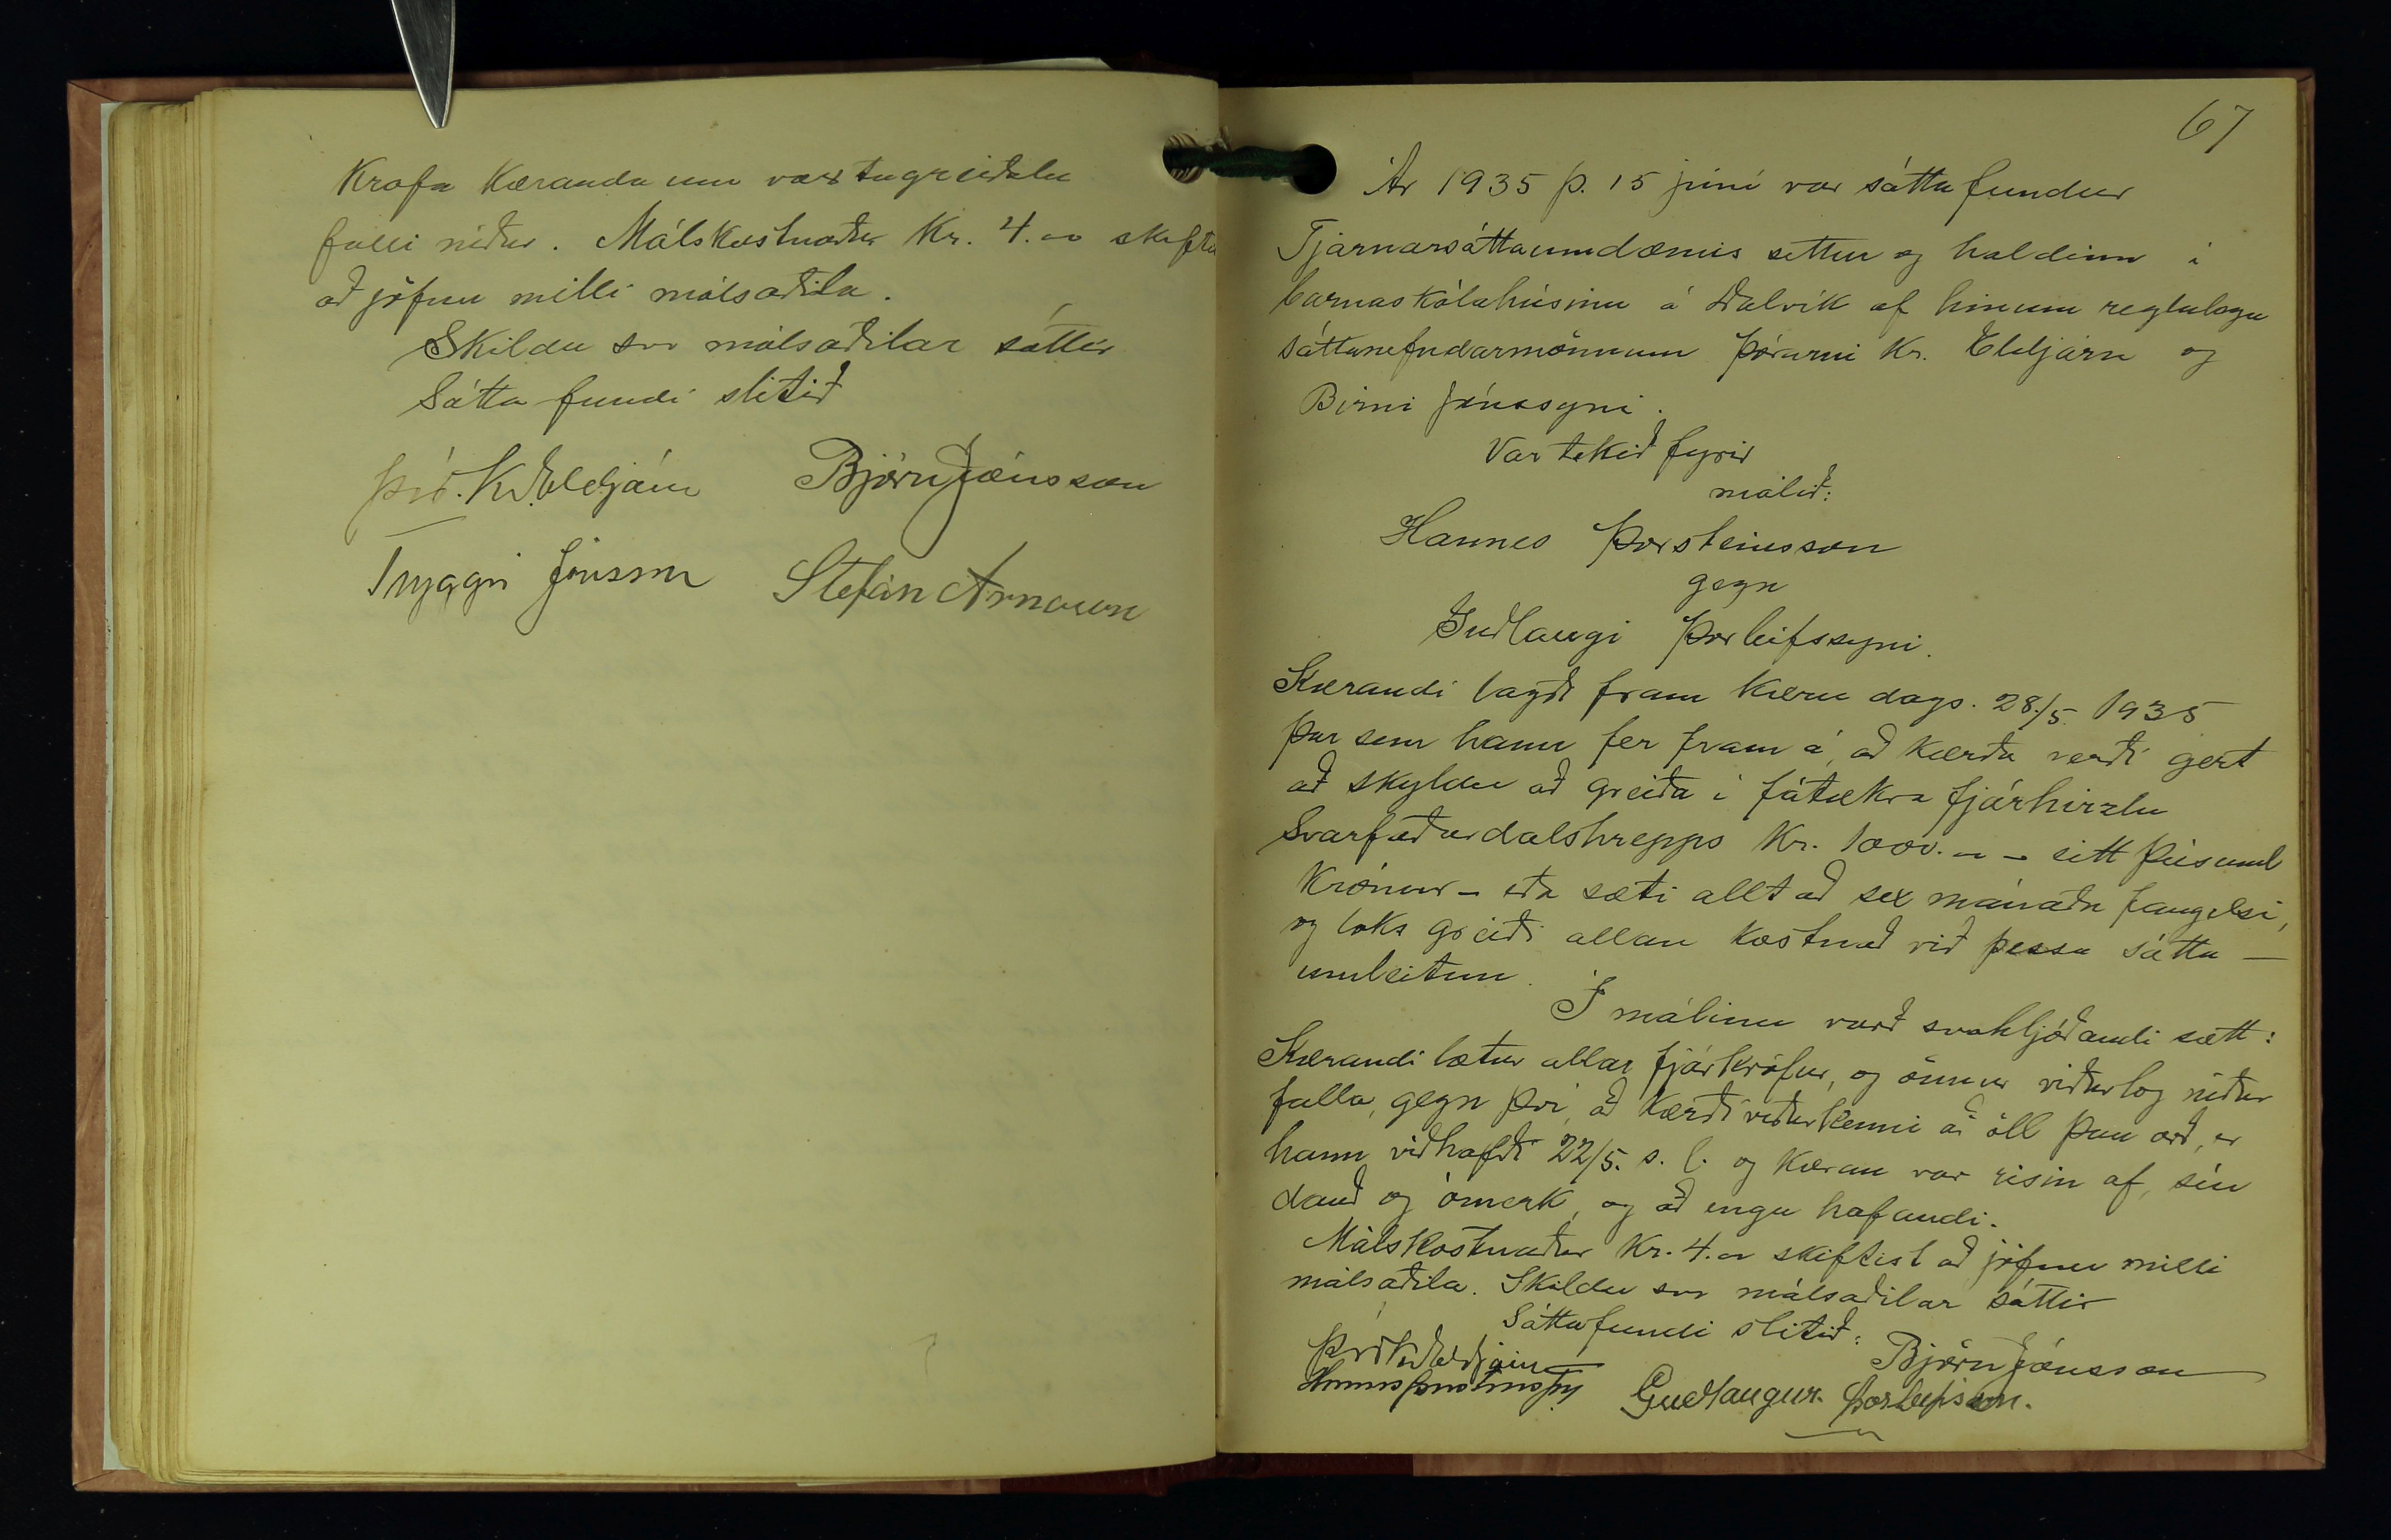 Krafa Kæranda um vaxtagreiðslu
falli niður. Málskostnaður Kr. 4.00 skiftist
að jöfnu milli málsaðila.
Skildu svo málsaðilar sáttir
Sátta fundi slitið
Þór. Kr. Eldjárn Björn Jónsson
Tryggvi Jónsson Stefán Arnason
67
Ár 1935 þ. 15 júní var sáttafundur
Tjarnarsáttaumdæmis settur og haldinn í
barnaskólahúsinu á Dalvík af hinum reglulegu
sáttanefndarmönnum Þórarni Kr. Eldjárn og
Birni Jónssyni.
Var tekið fyrir
málið:
Hannes Þorsteinsson
gegn
Guðlaugi Þorleifssyni.
Kærandi lagði fram kæru dags. 28./5. 1935
þar sem hann fer fram á, að kærða verði gert
að skyldu að greiða í fátækra fjárhirzlu
Svarfaðardalshrepps Kr. 1000.00 - eitt þúsund
Krónur - eða sæti allt að sex mánaða fangelsi,
og loks greiði allan kostnað við þessa sátta -
umleitun.
Í málinu varð svohljóðandi sætt:
Kærandi lætur allar fjárkröfur, og önnur viðurlög niður
falla, gegn því, að kærði viðurkenni að öll þau orð, er
hann viðhafði 22/5. s. l. og kæran var risin af, séu
dauð og ómerk, og að engu hafandi.
Málskostnaður Kr. 4.00 skiftist að jöfnu milli
málsaðila. Skildu svo málsaðilar sáttir
Sáttafundi slitið:
Þór. Kr. Eldjárn Björn Jónsson
Hannes Þorsteinsson Guðlaugur Þorleifsson.